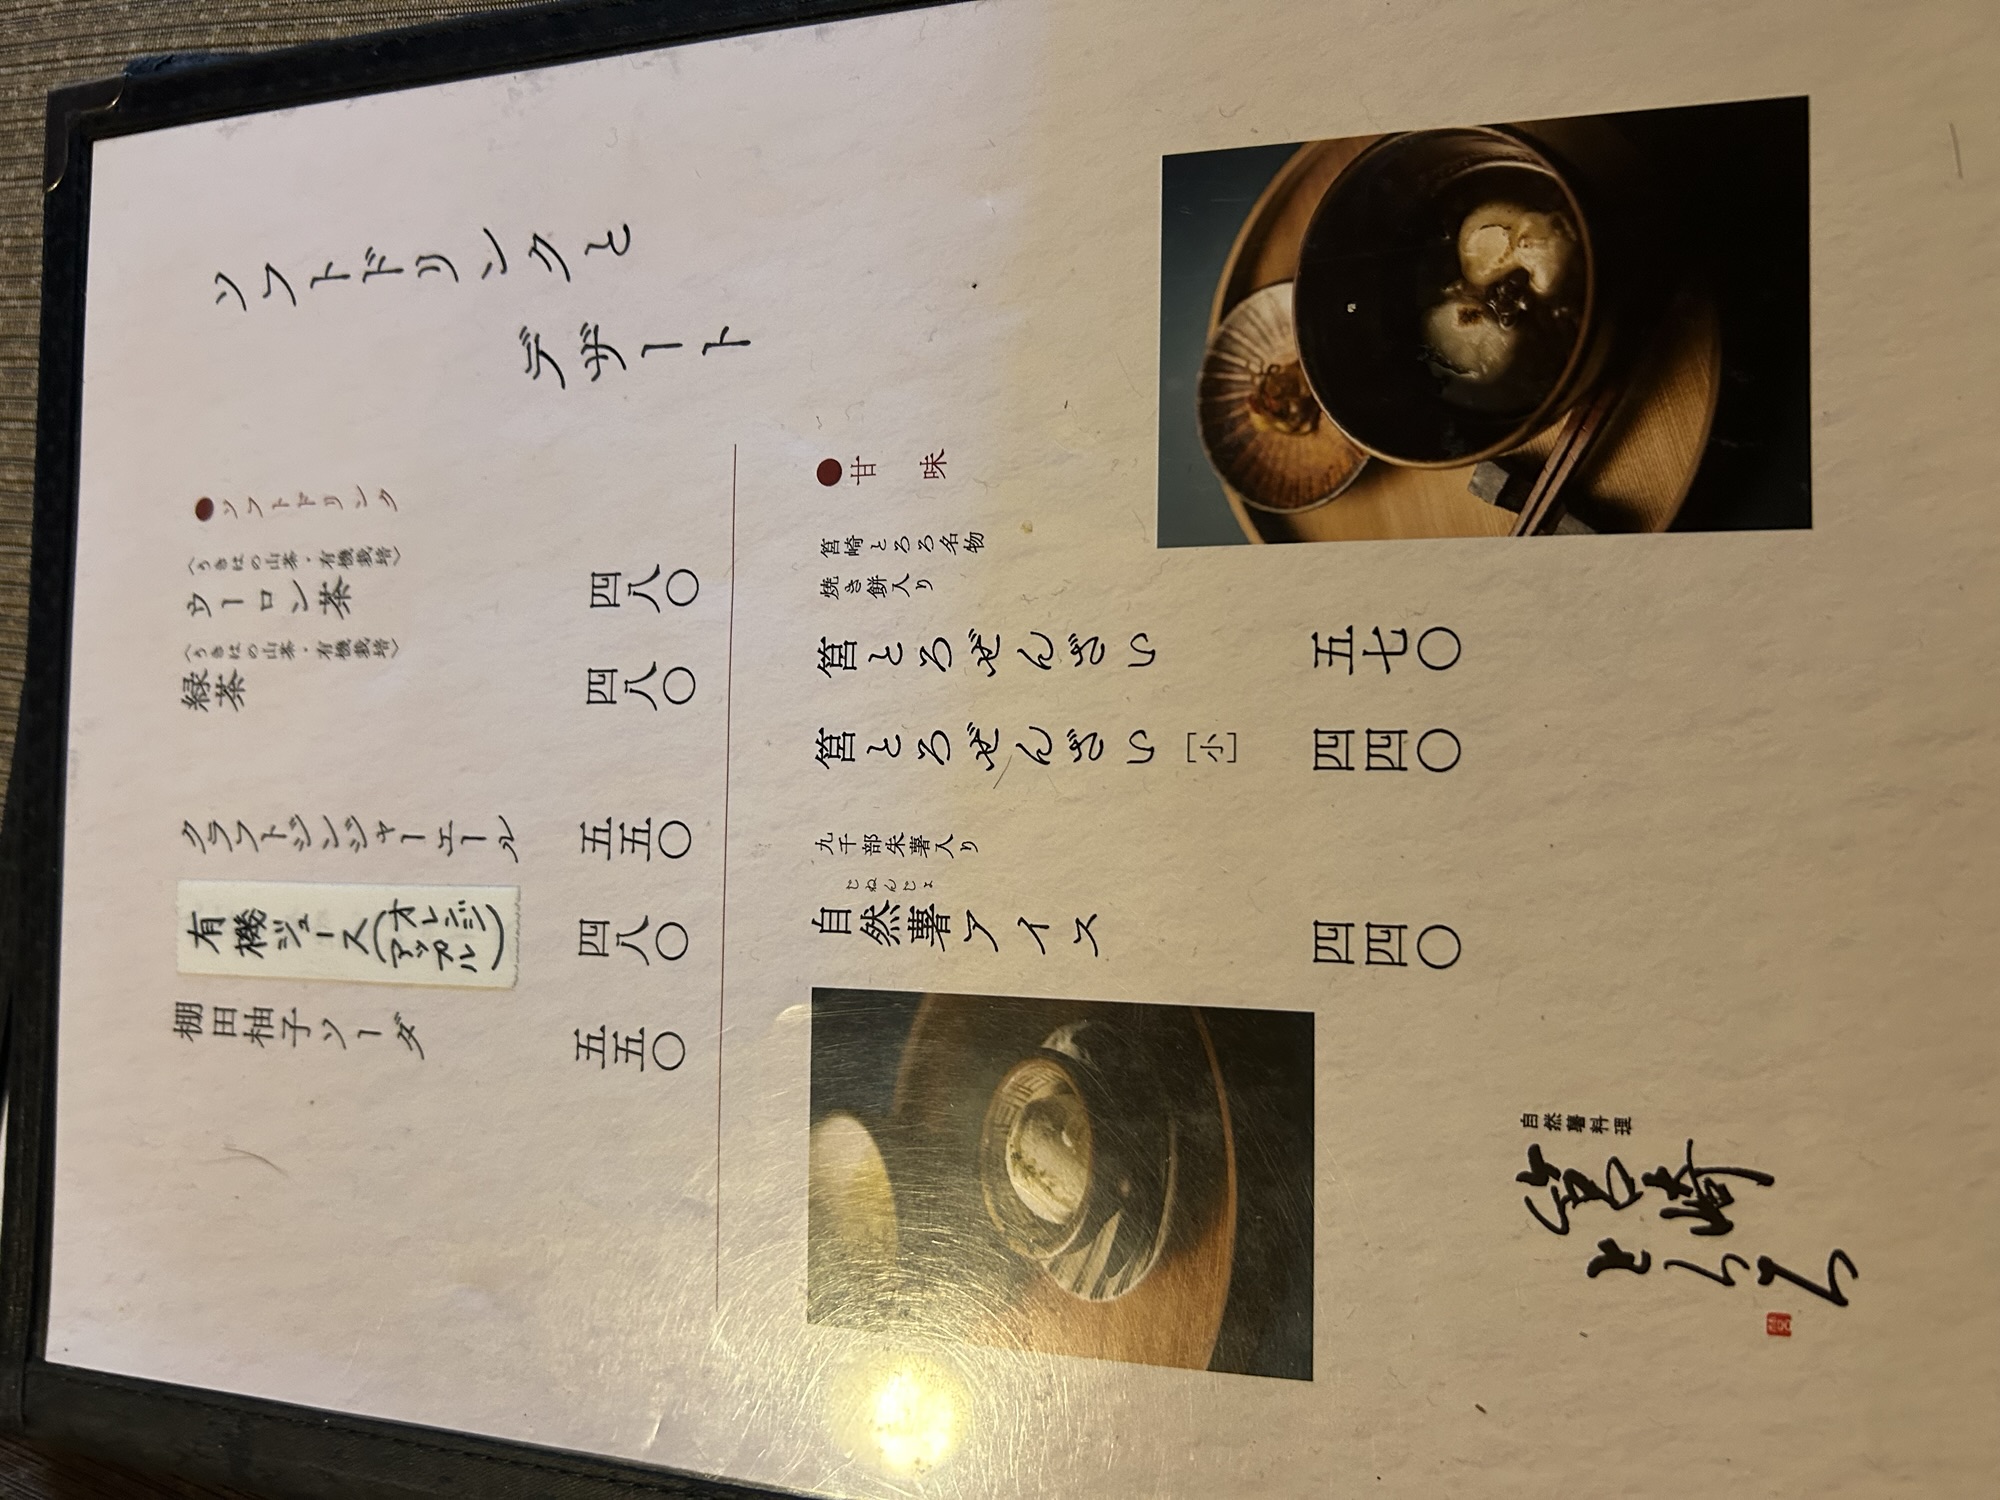 ソフトドリンクと
デザート
●ソフトドリンク
〈うきはの山茶・有機栽培〉
ウーロン茶 四八〇
〈うきはの山茶・有機栽培〉
緑茶 四八〇
クラフトジンジャーエール 五五〇
有機ジュース(オレンジ アップル) 四八〇
棚田柚子ソーダ 五五〇
●甘味
筥崎とろろ名物
焼き餅入り
筥とろぜんざい 五七〇
筥とろぜんざい［小］ 四四〇
九千部朱薯入り
じねんじょ
自然薯アイス 四四〇
自然薯料理
筥崎
とろろ